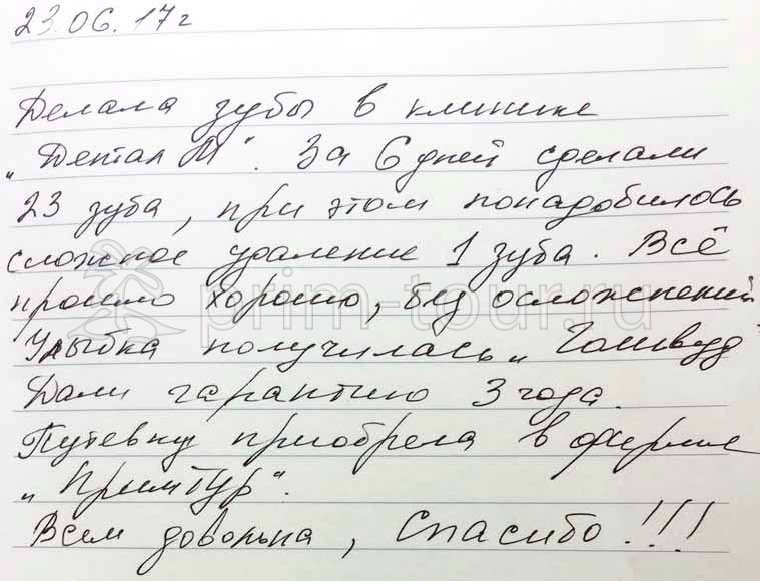 23.06.17г
Делала зубы в клинике
„Дентал М". За 6 дней сделали
23 зуба, при этом понадобилось
сложное удаление 1 зуба. Всё
прошло хорошо, без осложнений
Улыбка получилась „Голивуд"
Дали гарантию 3 года.
Путевку приобрела в фирме
„ПримТур".
Всем довольна, Спасибо!!!
prim-tour.ru